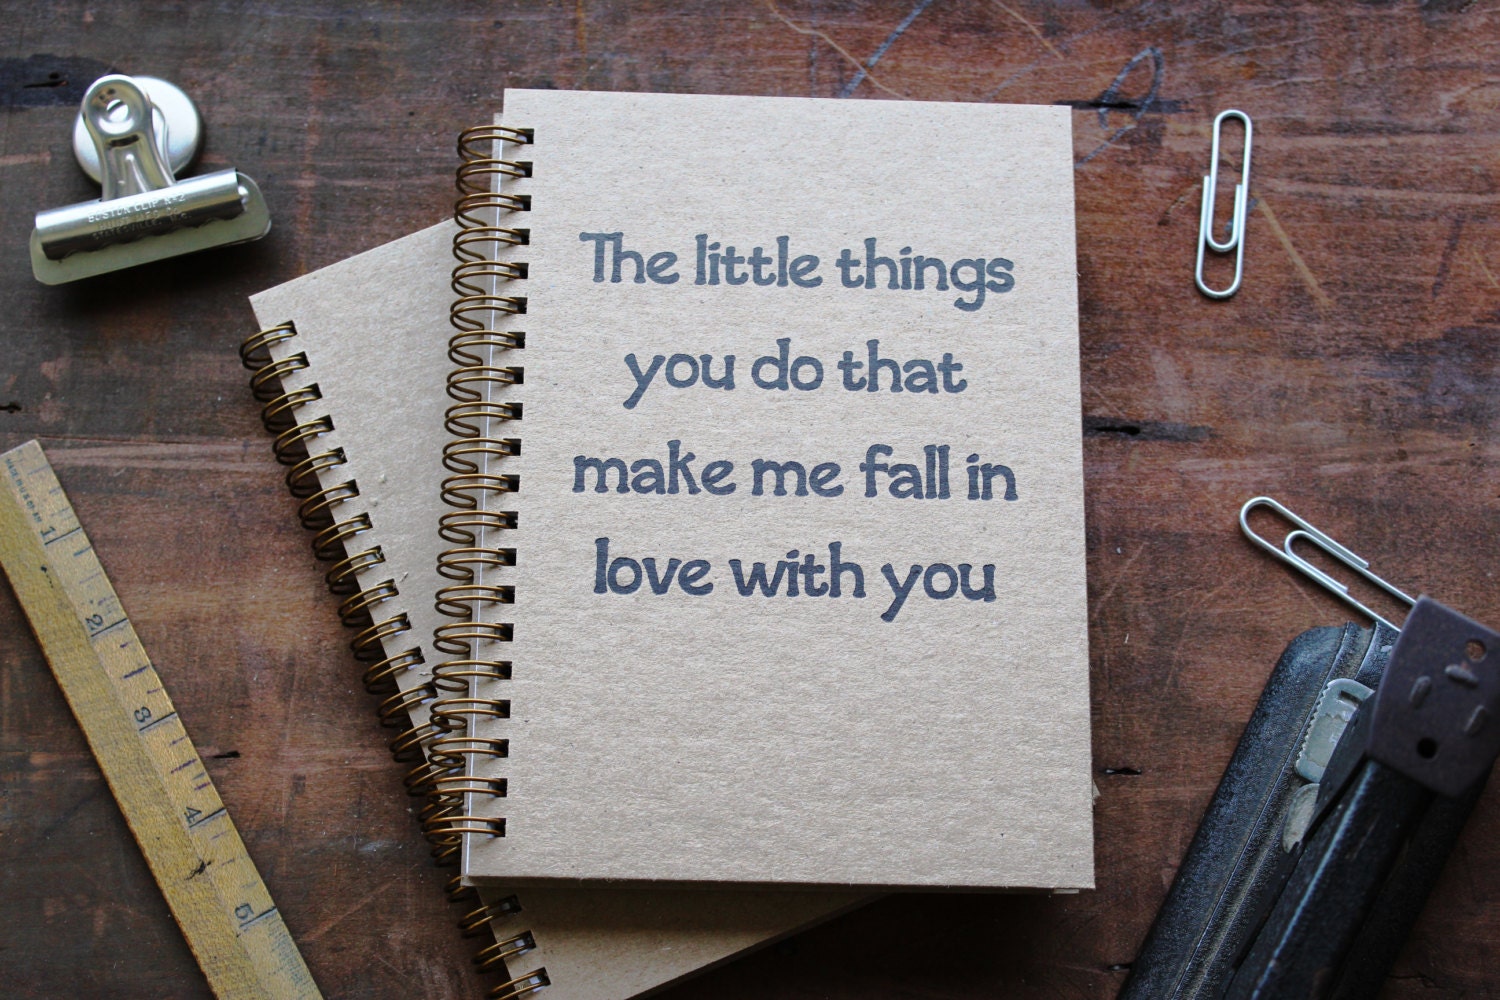 The little things
you do that
make me fall in
love with you
BOSTON CLIP No 2
1
2
3
4
5